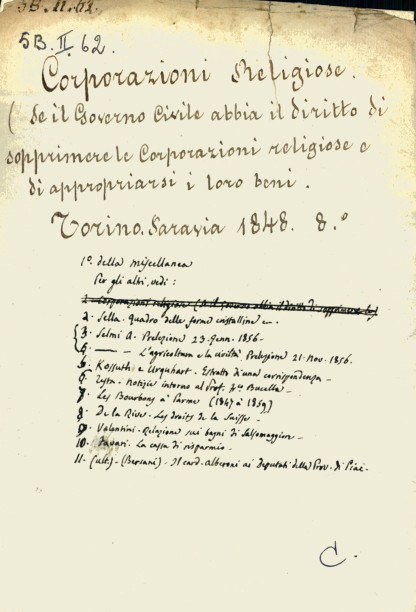 5B.II.62.
5B.II.62.
Corporazioni Religiose.
( Se il Governo Civile abbia il diritto di
sopprimere le Corporazioni religiose e
di appropriarsi i loro beni.
Torino. Saravia 1848. 8.°
1°. della miscellanea
Per gli altri, vedi:
1. Corporazioni religiose (Se il governo abbia il diritto di sopprimerle)
2. Sella. Quadro delle forme cristalline e.
3. Selmi A. Prelezione 23. Genn. 1856.
— L'agricoltura e la civiltà. Prelezione 21. Nov. 1856.
Kossuth e Urquhart. Estratto d'una corrispondenza -
Notizie intorno al Prof. Buccella -
7. Les Bourbons à Parme (1847 à 1859)
8. De la Rive. Les droits de la Suisse -
9. Valentini. Relazione sui bagni di Salsomaggiore -
10. La cassa di risparmio -
11. (ult.) - (Bersani) - Il card. Alberoni ai Deputati della Prov. di Piac.
C.